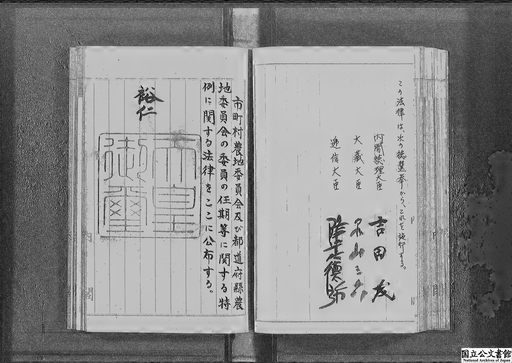 この法律は、次の総選挙から、これを施行する。
内閣総理大臣 吉田茂
大蔵大臣
逓信大臣
市町村農地委員会及び都道府縣農
地委員会の委員の任期等に関する特
例に関する法律をここに公布する。
裕仁
天皇
御璽
国立公文書館
National Archives of Japan